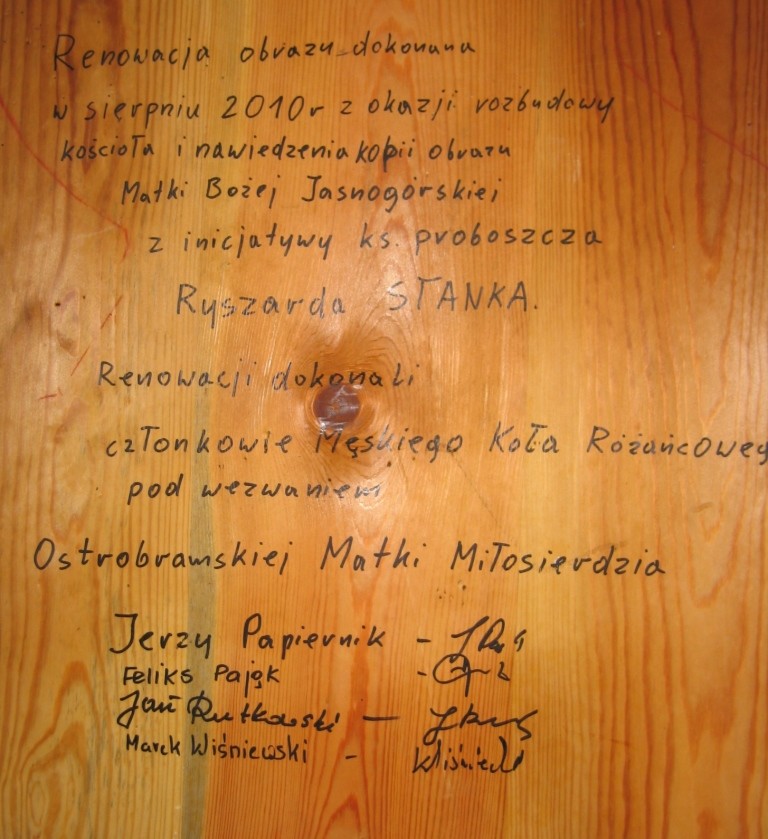 Renowacja obrazu dokonana
w sierpniu 2010r z okazji rozbudowy
kościoła i nawiedzenia kopii obrazu
Matki Bożej Jasnogórskiej
z inicjatywy ks. proboszcza
Ryszarda STANKA.
Renowacji dokonali
członkowie Męskiego Koła Różańcoweg
pod wezwaniem
Ostrobramskiej Matki Miłosierdzia
Jerzy Papiernik -
Feliks Pająk -
Jan Rutkowski -
Marek Wiśniewski -